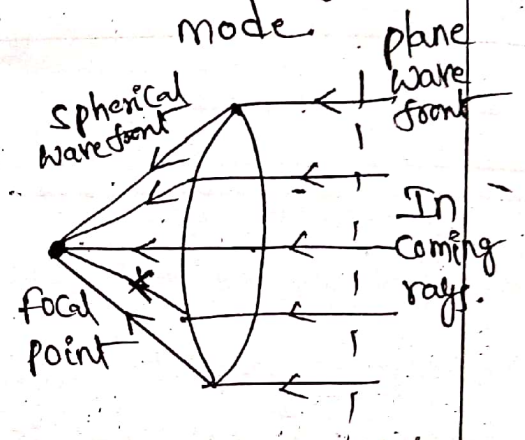 mode.
plane
wave
front
Spherical
wave front
In
coming
rays.
focal
point